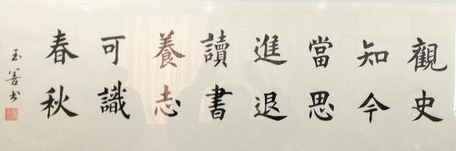 觀史
知今
當思
進退
讀書
養志
可識
春秋
玉書书